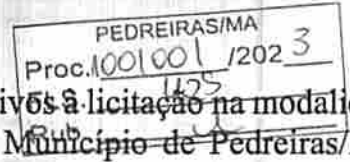 PEDREIRAS/MA
Proc. 1001001 /2023
1425
ivos à licitação na modali
Município de Pedreiras/